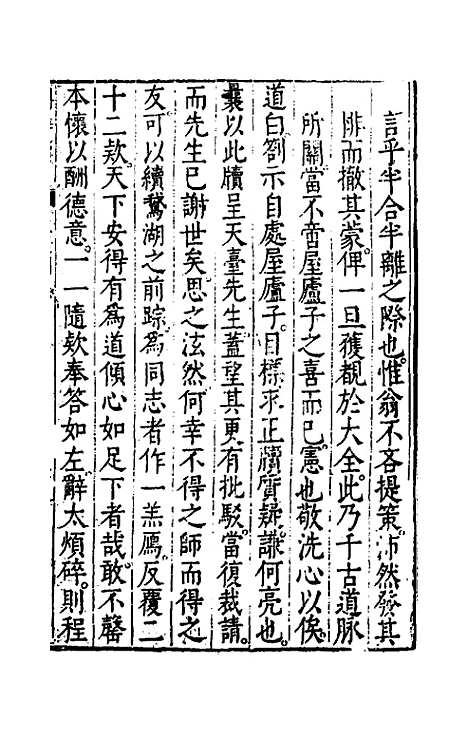 言乎半合半離之際也惟翁不吝提策沛然發其
悱而撤其蒙俾一旦獲覩於大全此乃千古道脉
所關當不啻屋廬子之喜而已憲也敬洗心以俟
道白劄示自處屋廬子目樣求正牘質疑謙何亮也
曩以此牘呈天臺先生蓋望其更有批駁當復裁請
而先生已謝世矣思之泫然何幸不得之師而得之
友可以續鵞湖之前踪爲同志者作一羔鴈反覆二
十二欵天下安得有爲道傾心如足下者哉敢不罄
本懷以酬德意一一隨欵奉答如左辭太煩碎則程